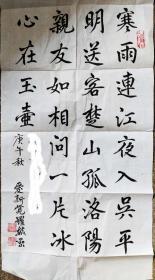 寒雨連江夜入吳平
明送客楚山孤洛陽
親友如相問一片冰
心在玉壺
庚午秋
愛新覺羅